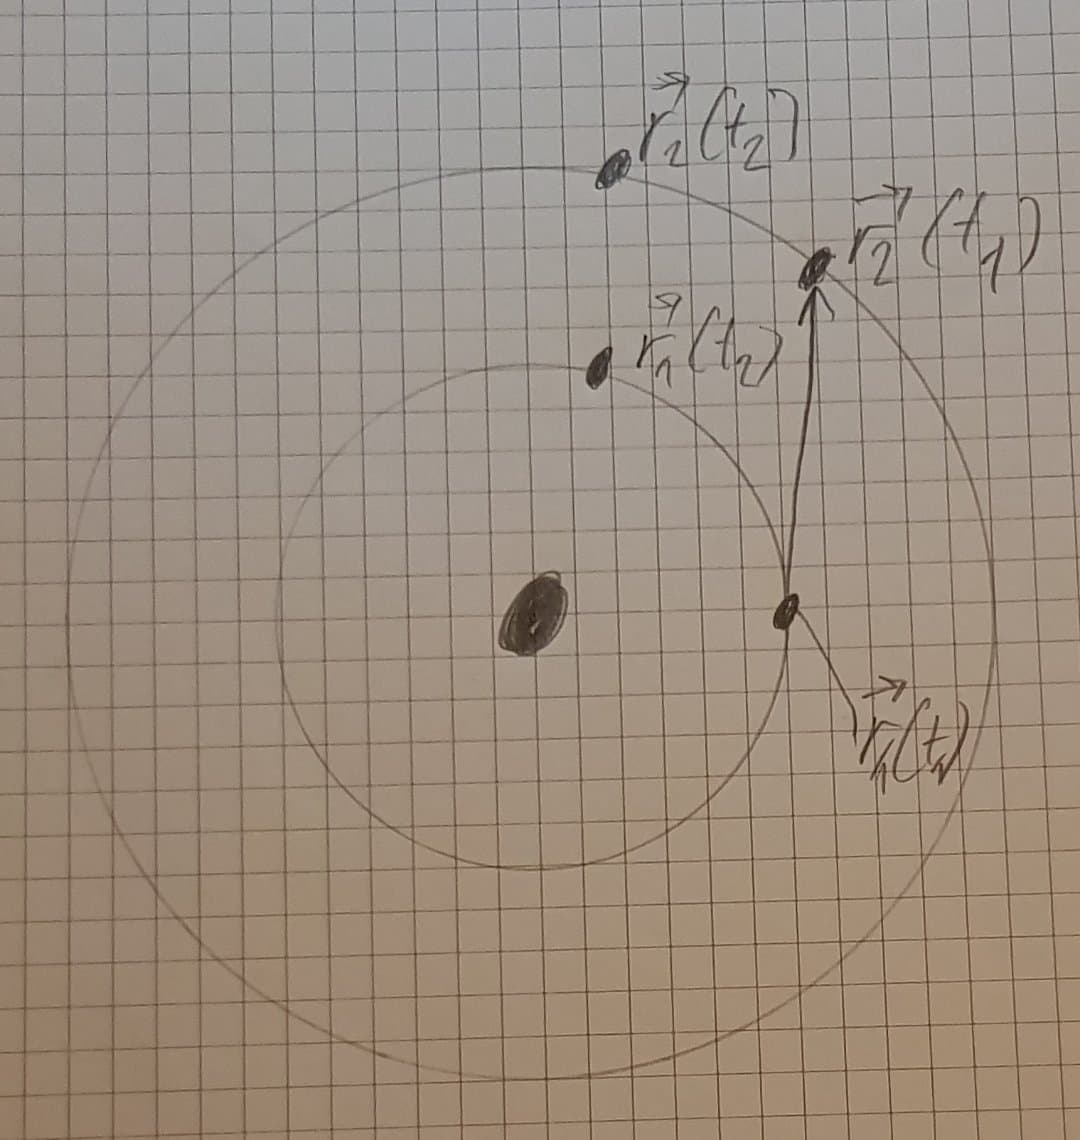 r⃗₂(t₂)
r⃗₂(t₁)
r⃗₁(t₂)
r⃗₁(t₁)